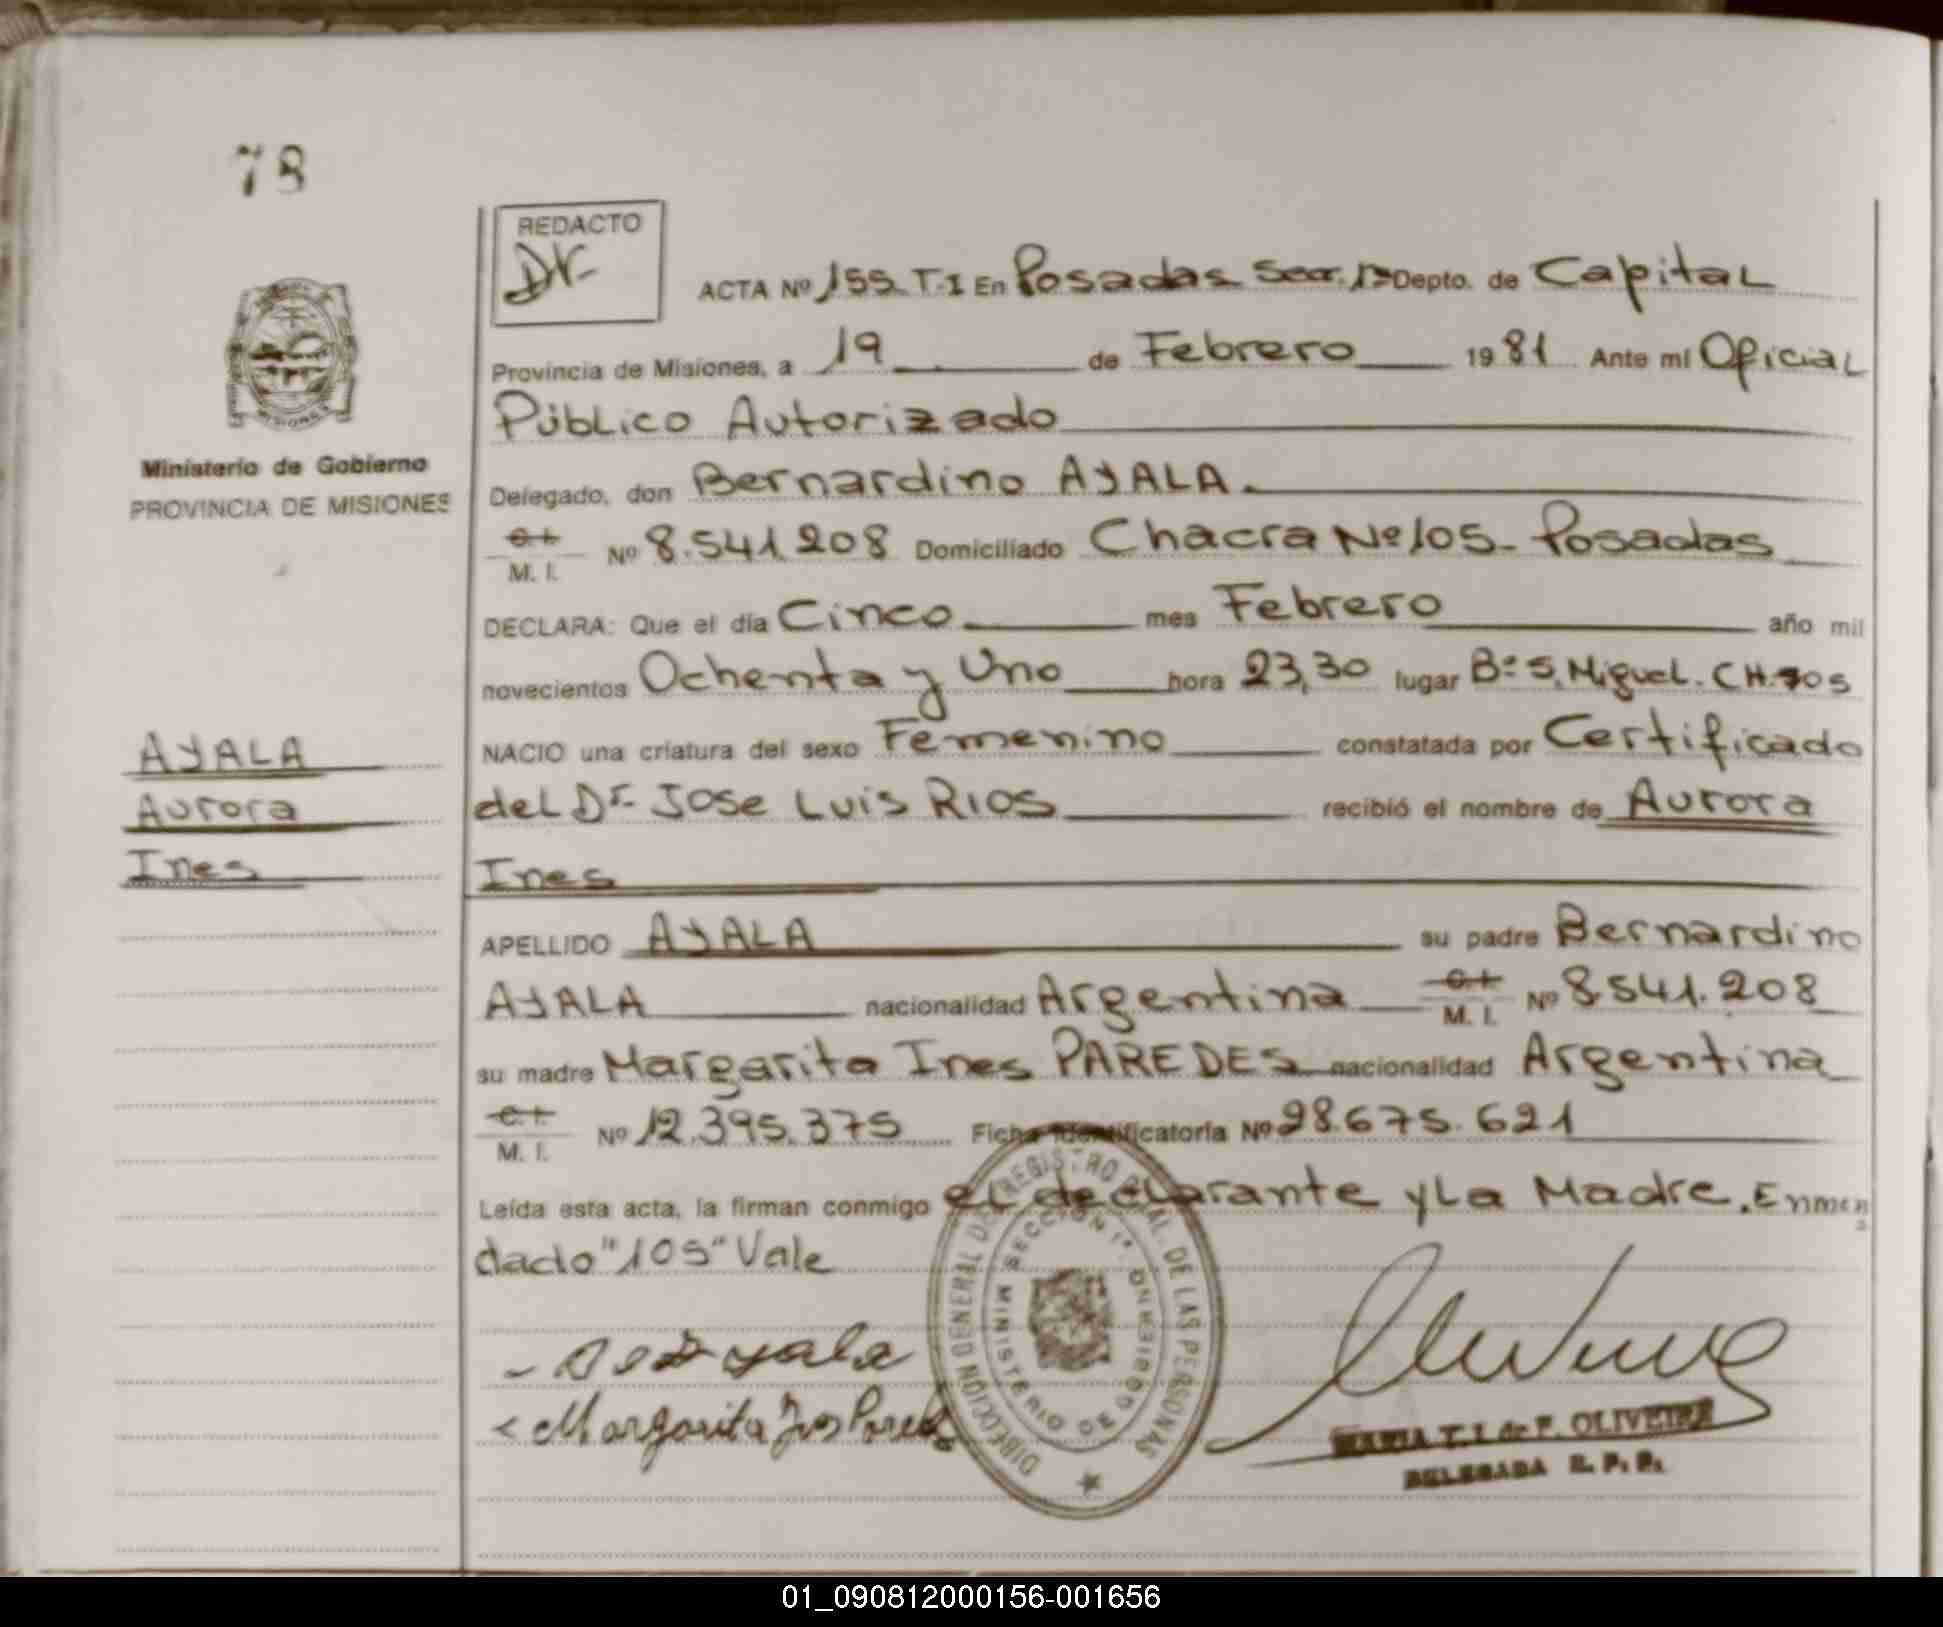 78
REDACTO
Dr.
ACTA Nº 155 T.I En Posadas Secc. 1ª Depto. de Capital
Provincia de Misiones, a 19 de Febrero 1981 Ante mi Oficial
Público Autorizado
Ministerio de Gobierno
PROVINCIA DE MISIONES
Delegado, don Bernardino AYALA.
C.I.
M. I. Nº 8.541.208 Domiciliado Chacra Nº 105- Posadas
DECLARA: Que el día Cinco mes Febrero año mil
novecientos Ochenta y Uno hora 23,30 lugar Bº S. Miguel. CH.105
AYALA
NACIO una criatura del sexo Femenino constatada por Certificado
Aurora
del Dr. JOSE LUIS RIOS recibió el nombre de Aurora
Ines
Ines
APELLIDO AYALA su padre Bernardino
AYALA nacionalidad Argentina C.I. M. I. Nº 8.541.208
su madre Margarita Ines PAREDES nacionalidad Argentina
C.I.
M. I. Nº 12.395.375 Ficha Identificatoria Nº 28.675.621
Leída esta acta, la firman conmigo el declarante y La Madre. Enmen
dado "105" Vale
Margarita Ines Paredes
DIRECCION GENERAL DE REGISTRO PCIAL. DE LAS PERSONAS
SECCION 1ª
MINISTERIO DE GOBIERNO
MARIA T. I. de F. OLIVEIRA
DELEGADA R. P. P.
01_090812000156-001656